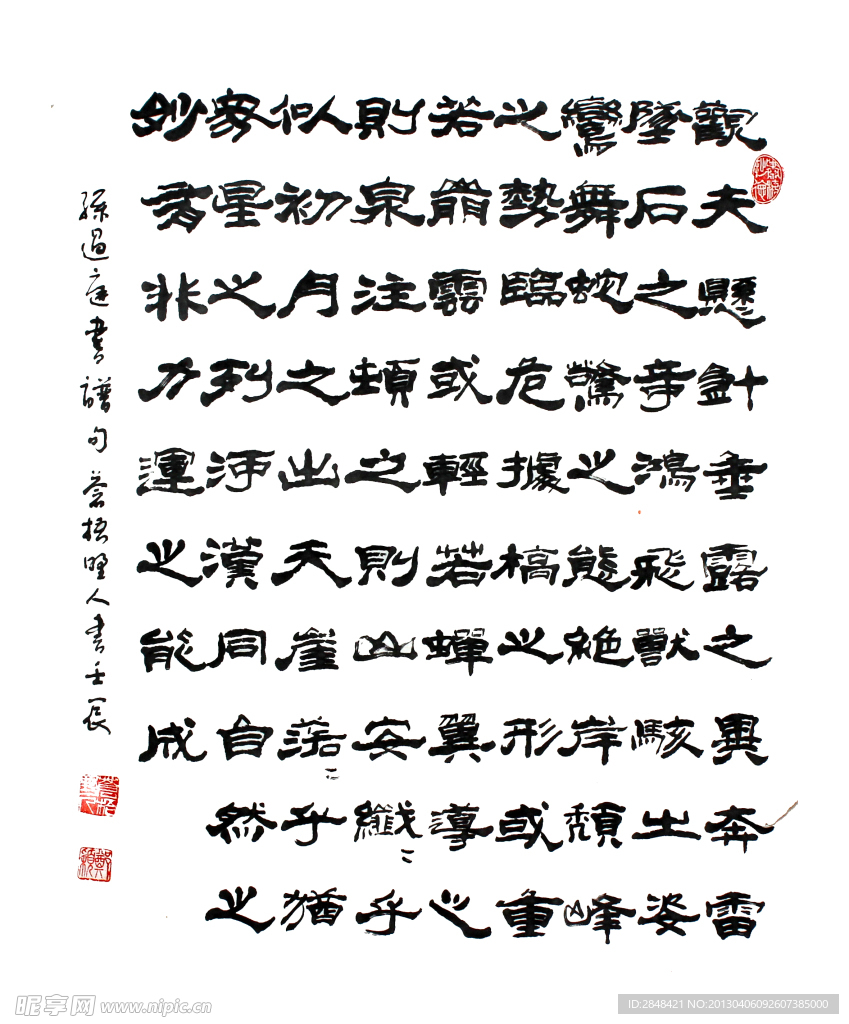 觀夫懸針垂露之異奔雷
墜石之奇鴻飛獸駭之姿
鸞舞蛇驚之態絶岸頹峰
之勢臨危據槁之形或重
若崩雲或輕若蟬翼導之
則泉注頓之則山安纖〻乎
似初月之出天崖落〻乎猶
衆星之列河漢同自然之
妙有非力運之能成
孫過庭書譜句 蒼梧野人書壬辰
昵享网 www.nipic.cn
ID:2848421 NO:20130406092607385000